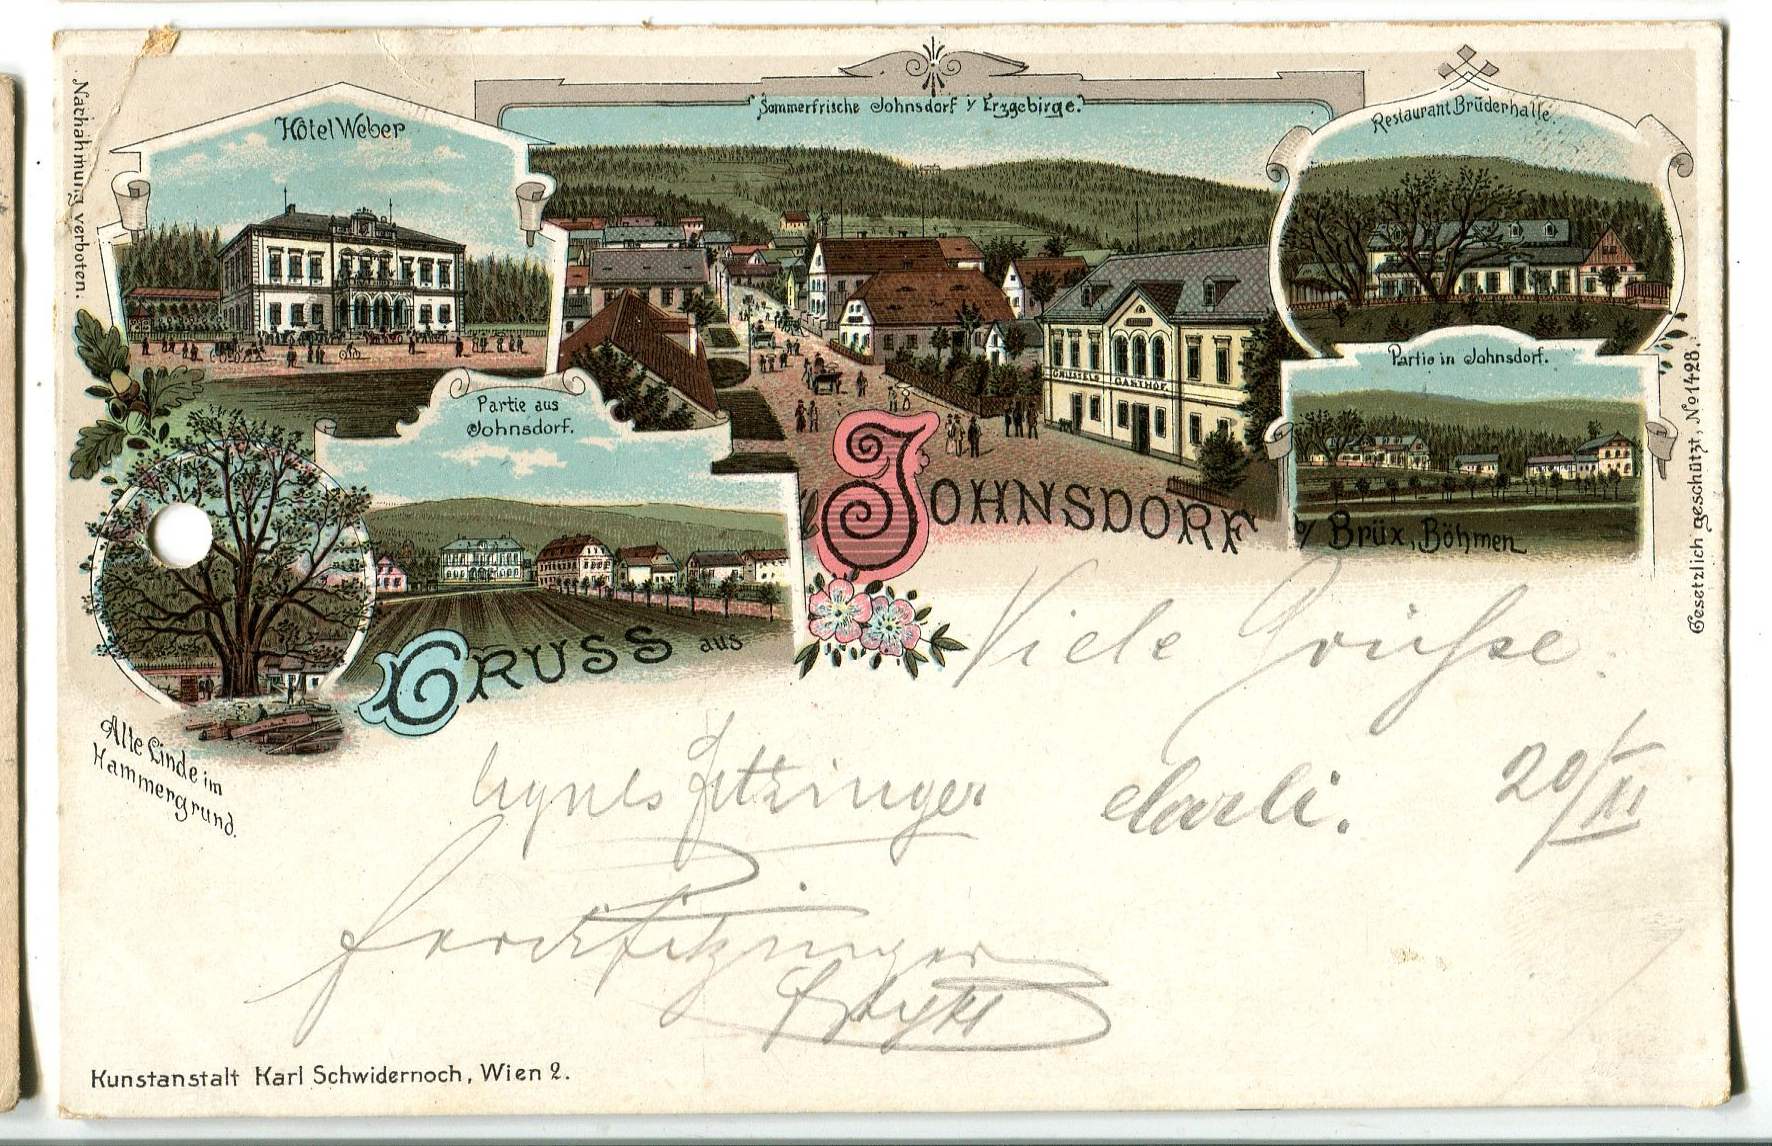 Nachahmung verboten.
Hôtel Weber
Sommerfrische Johnsdorf i/ Erzgebirge.
Restaurant Brüderhalle.
Partie aus
Johnsdorf.
GASTHOF
Partie in Johnsdorf.
Gesetzlich geschützt, No 1428.
Gruss aus
Johnsdorf
b/ Brüx, Böhmen
Alte Linde im
Hammergrund.
Viele Grüße
Agnes Fitzinger
20/XI
Ferd Fitzinger
Kunstanstalt Karl Schwidernoch, Wien 2.